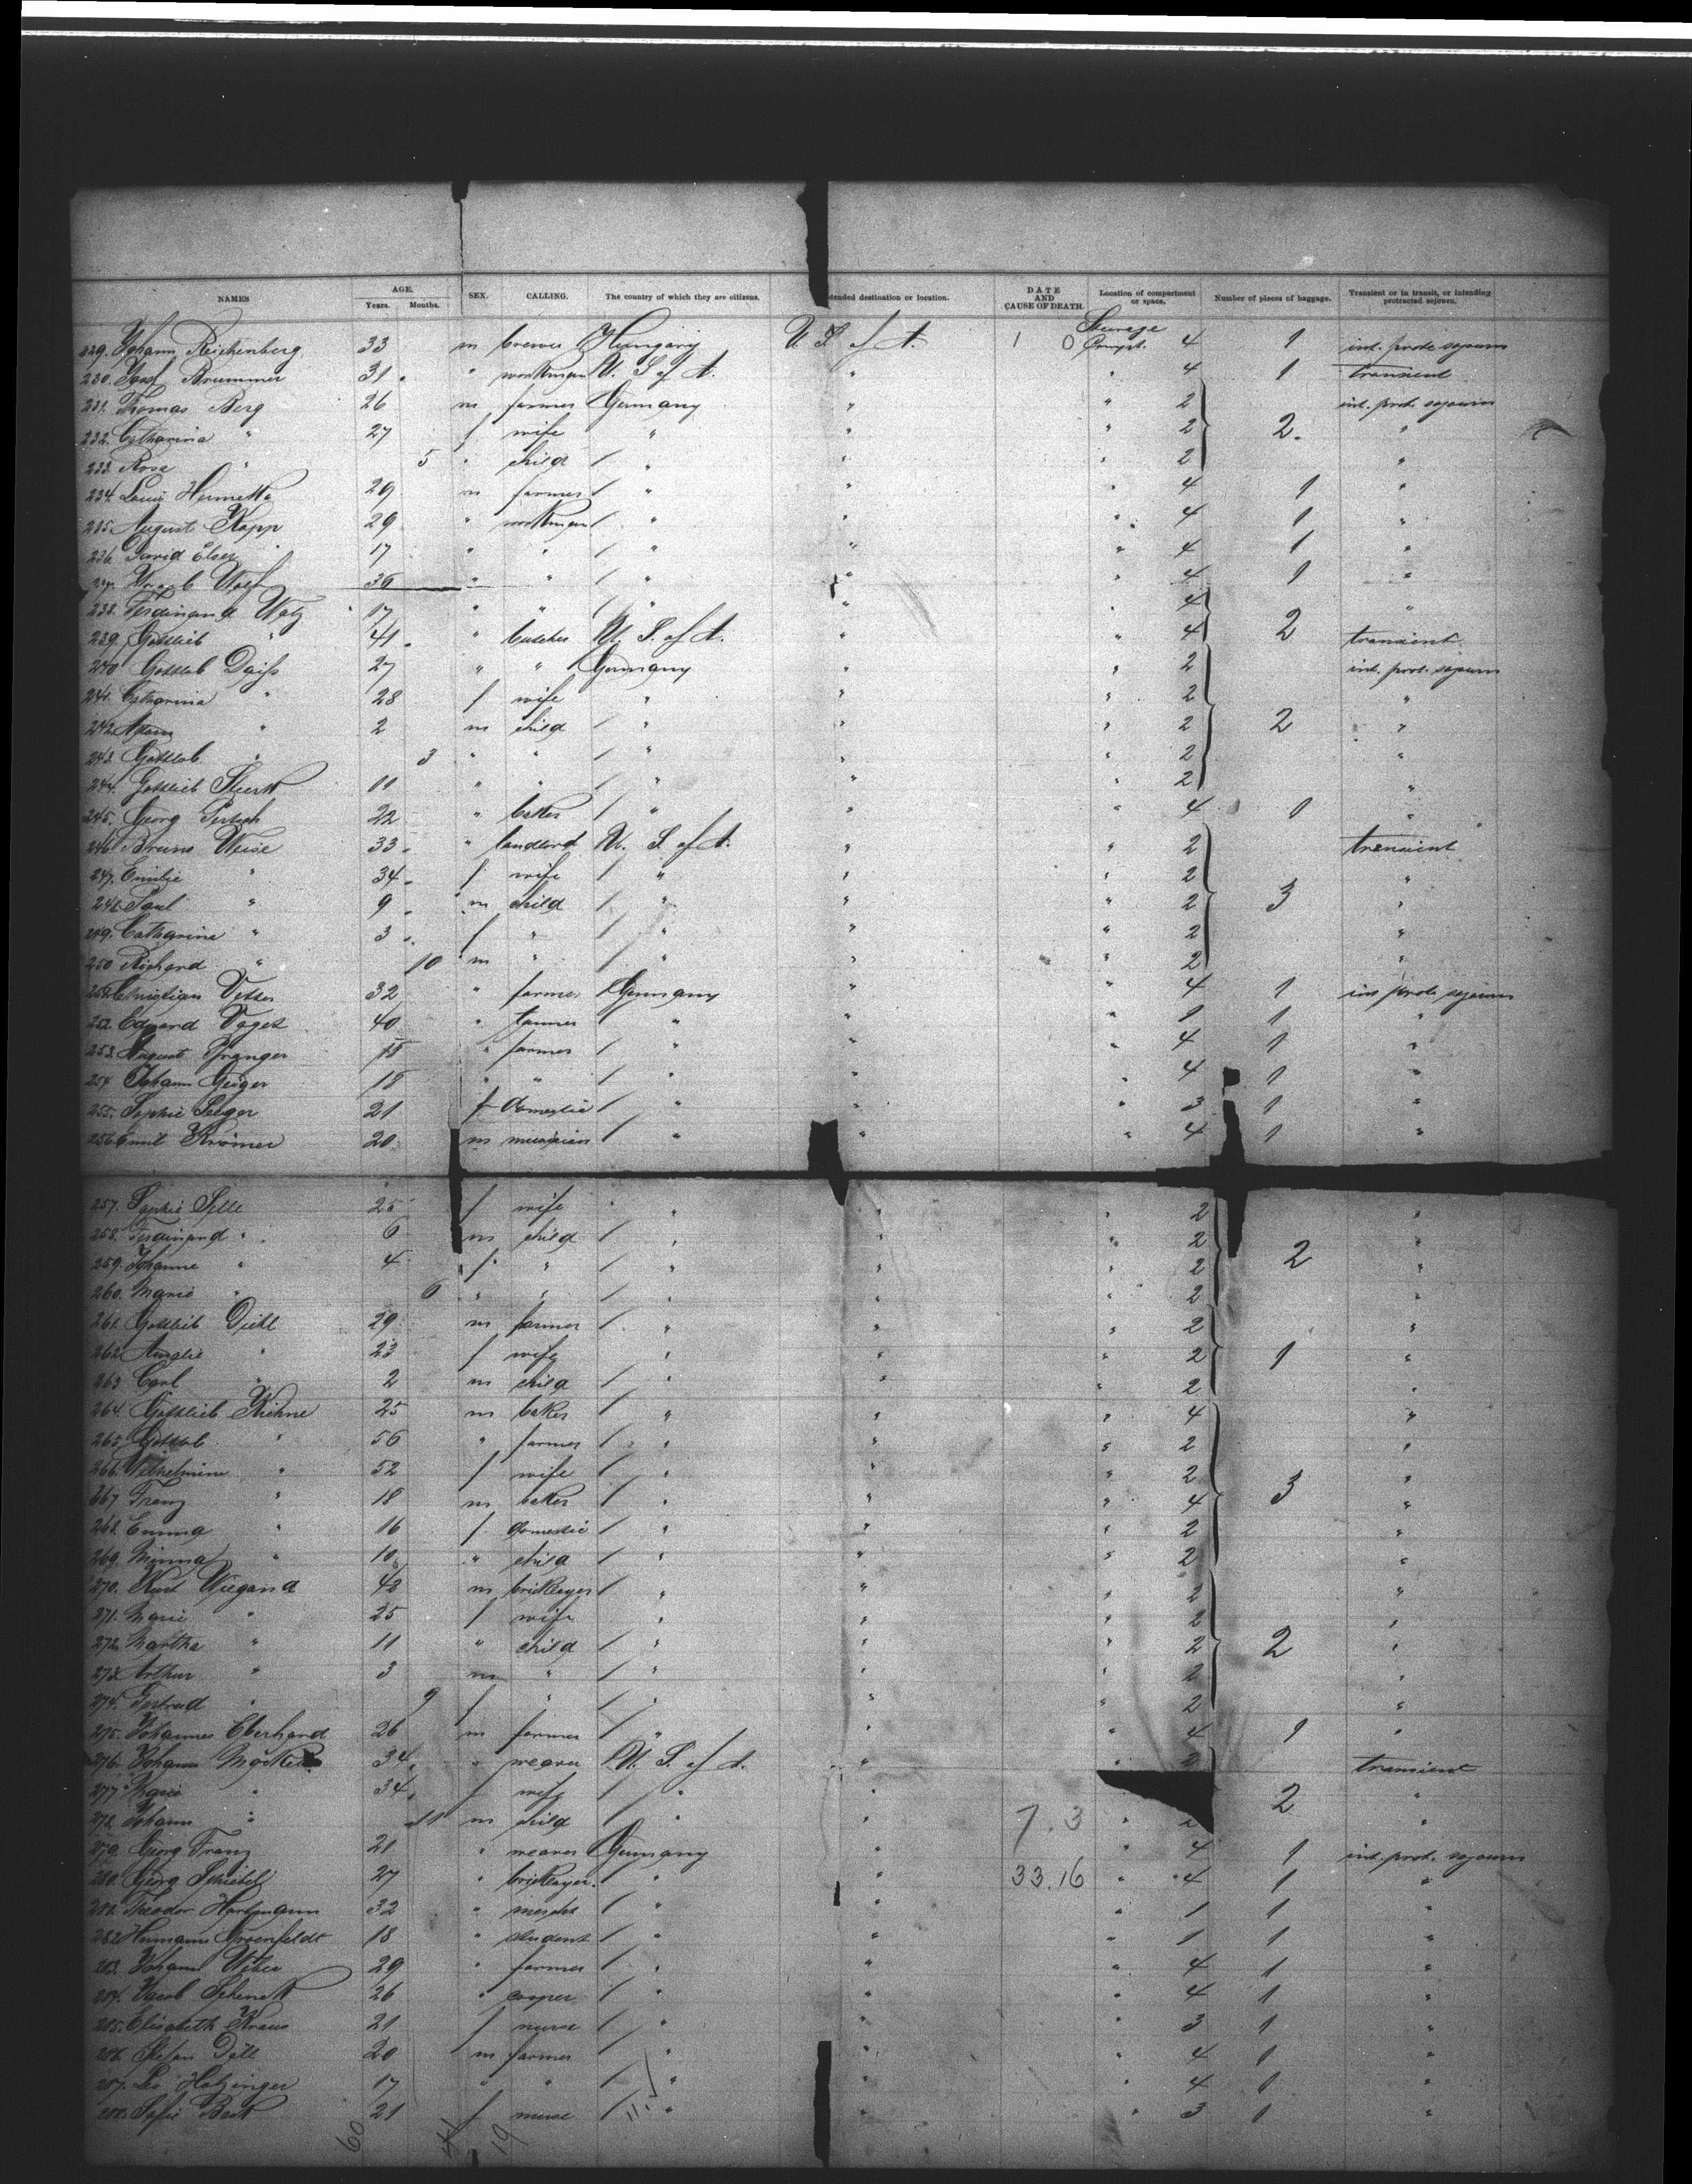 NAMES AGE. Years. Months. SEX. CALLING. The country of which they are citizens. tended destination or location. DATE AND CAUSE OF DEATH. Location of compartment or space. Number of pieces of baggage. Transient or in transit, or intending protracted sojourn.
229. Johann Reichenberg 33 m brewer Hungary U. S. of A. 1 0 Steerage Compt. 4 1 int. prote sojourn
230. Josef Brummer 31 " workman U. S. of A. " " 4 1 transient
231. Thomas Berg 26 m farmer Germany " " 2 int. prot. sojourn
232. Catharina " 27 f wife " " " 2 2. "
233. Rosa " 5 " child " " " 2 "
234. Louis 29 m farmer " " " 4 1 "
235. August Kapp 29 " workman " " " 4 1 "
236. David Elser 17 " " " " " 4 1 "
237. Jacob Wolf 36 " " " " " 4 1 "
238. Ferdinand Walz 17 " " " " " 4 "
239. Gottlieb " 41 " butcher U. S. of A. " " 4 2 transient
240 Gottlob Daiss 27 " " Germany " " 2 int. prot. sojourn
241. Catharina " 28 f wife " " " 2 "
242. Adam " 2 m child " " " 2 2 "
243. Gottlob " 3 " " " " " 2 "
244. Gottlieb 11 " " " " " 2 "
245. Georg 22 " baker " " " 4 1 "
246. Bruno Weise 33 " landlord U. S. of A. " " 2 transient
247. Emilie " 34 f wife " " " 2 "
248. Paul " 9 m child " " " 2 3 "
249. Catharine " 3 f " " " " 2 "
250 Richard " 10 m " " " " 2 "
251. Christian Vetter 32 " farmer Germany " " 4 1 int prote sojourn
252. Eduard Voget 40 " tanner " " " 1 1 "
253. August Pranger 15 " farmer " " " 4 1 "
254 Johann Geiger 18 " " " " " 4 1 "
255. Sophie Seeger 21 f domestic " " " 3 1 "
256. Emil Krömer 20 m musician " " " 4 1 "
257. Sophie Selle 25 f wife " " " 2 "
258. Ferdinand " 6 m child " " " 2 "
259. Johanne " 4 f " " " " 2 2 "
260. Marie " 6 " " " " " 2 "
261. Gottlieb Diehl 29 m farmer " " " 2 "
262. Amalie " 23 f wife " " " 2 1 "
263 Carl " 2 m child " " " 2 "
264. Gottlieb Kühne 25 m baker " " " 4 "
265. Gottlob " 56 " farmer " " " 2 "
266. Wilhelmine " 52 f wife " " " 2 "
267 Franz " 18 m baker " " " 4 3 "
268. Emma " 16 f domestic " " " 2 "
269. Minna " 10 " child " " " 2 "
270. Kurt Wiegand 42 m bricklayer " " " 2 "
271. Marie " 25 f wife " " " 2 "
272. Martha " 11 " child " " " 2 2 "
273. Arthur " 3 m " " " " 2 "
274. Gertrud " 9 f " " " " 2 "
275. Johannes Eberhard 26 m farmer " " " 4 1 "
276. Johann 34 " weaver U. S. of A. " " 2 transient
277 Marie " 34 f wife " " 2 "
278. Johann " 11 m child " " 7.3 " 2 "
279. Georg Franz 21 " weaver Germany " " 4 1 int. prot. sojourn
280. Georg Scheibel 27 " bricklayer " " 33.16 " 4 1 "
281. Theodor Hartmann 32 " mercht " " " 1 1 "
282. Hermann Groenfeldt 18 " student " " " 1 1 "
283. Johann Weber 29 " farmer " " " 4 1 "
284. Jacob Schenck 26 " cooper " " " 4 1 "
285. Elisabeth Kraus 21 f nurse " " " 3 1 "
286. Stefan Döll 20 m farmer " " " 4 1 "
287. Leo Holzinger 17 " " " " " 4 1 "
288. Sofie Beck 21 f nurse " " " 3 1 "
60 41 19